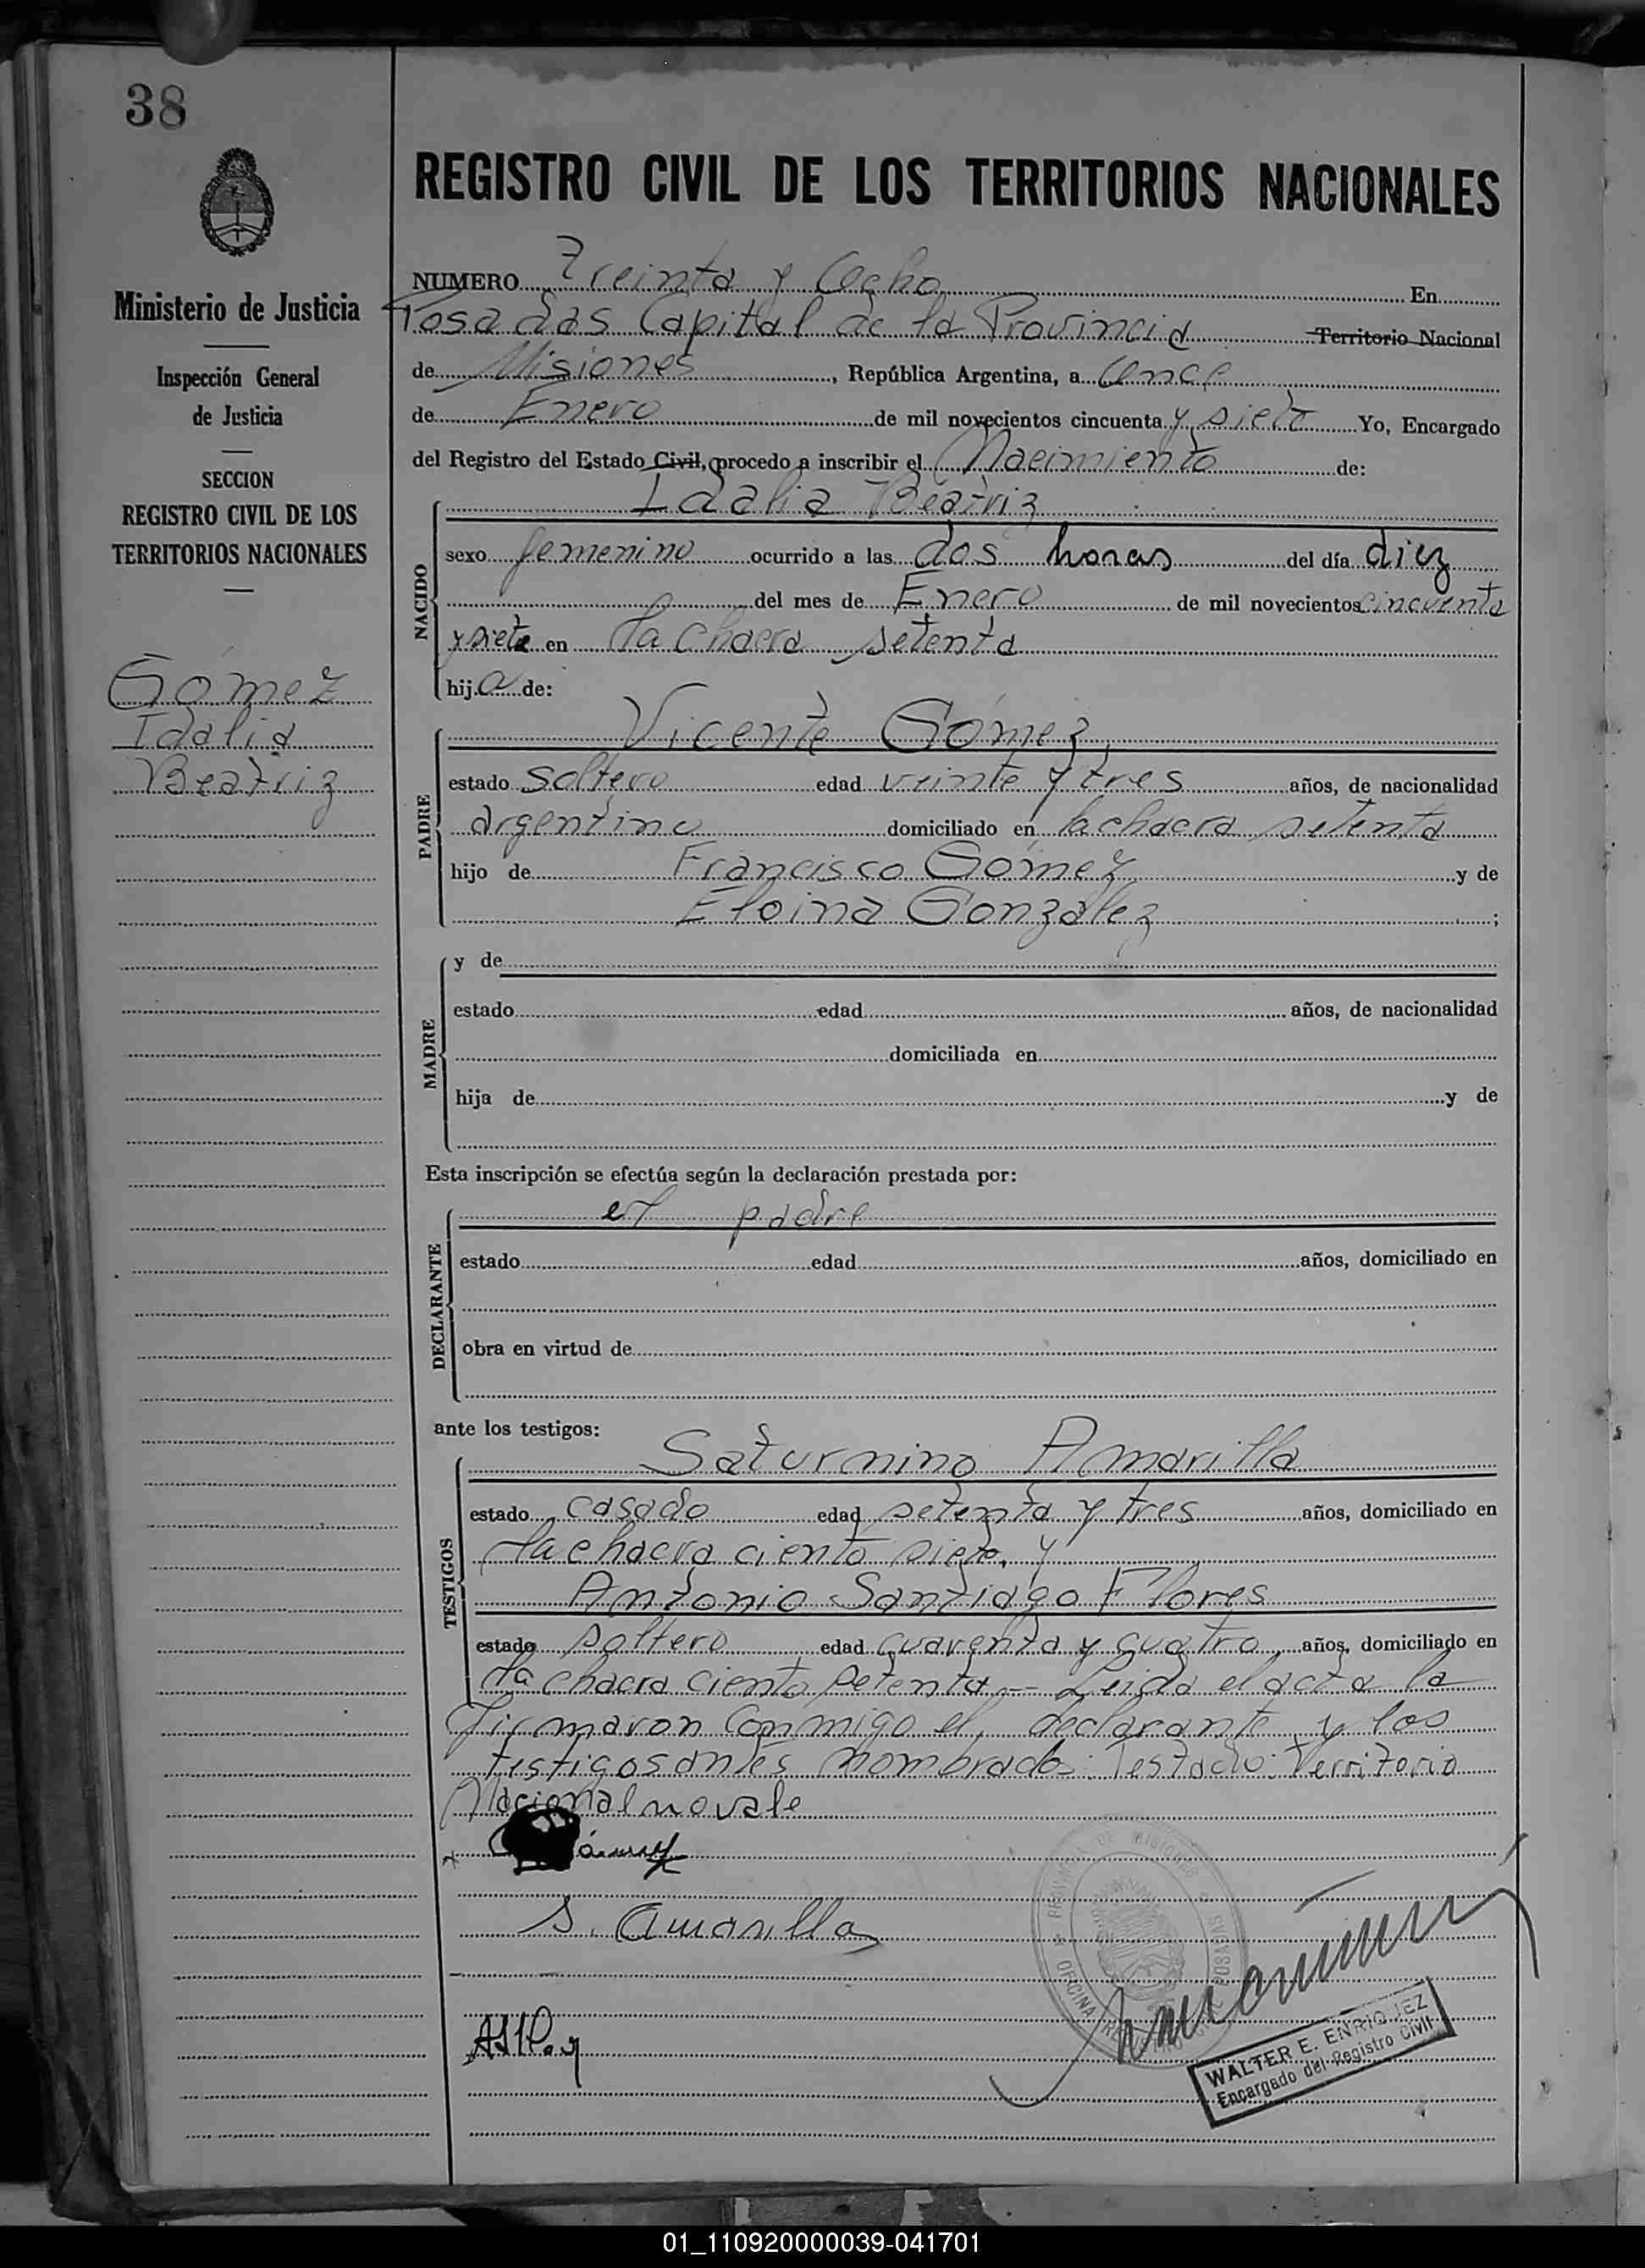 38
REGISTRO CIVIL DE LOS TERRITORIOS NACIONALES
Ministerio de Justicia
Inspección General
de Justicia
SECCION
REGISTRO CIVIL DE LOS
TERRITORIOS NACIONALES
Gómez
Idalia
Beatriz
NUMERO Treinta y Ocho En
Posadas Capital de la Provincia Territorio Nacional
de Misiones, República Argentina, a Once
de Enero de mil novecientos cincuenta y siete Yo, Encargado
del Registro del Estado Civil, procedo a inscribir el Nacimiento de:
NACIDO
Idalia Beatriz
sexo femenino ocurrido a las dos horas del día diez
del mes de Enero de mil novecientos cincuenta
y siete en la chacra setenta
hija de:
PADRE
Vicente Gómez,
estado soltero edad veinte y tres años, de nacionalidad
argentino domiciliado en la chacra setenta
hijo de Francisco Gómez y de
Eloina González ;
MADRE
y de
estado edad años, de nacionalidad
domiciliada en
hija de y de
Esta inscripción se efectúa según la declaración prestada por:
DECLARANTE
el padre
estado edad años, domiciliado en
obra en virtud de
ante los testigos:
TESTIGOS
Saturnino Amarilla
estado casado edad setenta y tres años, domiciliado en
la chacra ciento siete, y
Antonio Santiago Flores
estado soltero edad cuarenta y cuatro años, domiciliado en
la chacra ciento setenta — Leida el acta la
firmaron conmigo el declarante y los
testigos antes nombrados: Testado: Territorio
Nacional no vale
S. Amarilla
PROVINCIA DE MISIONES
POSADAS
OFICINA
WALTER E. ENRIQUEZ
Encargado del Registro Civil
01_110920000039-041701